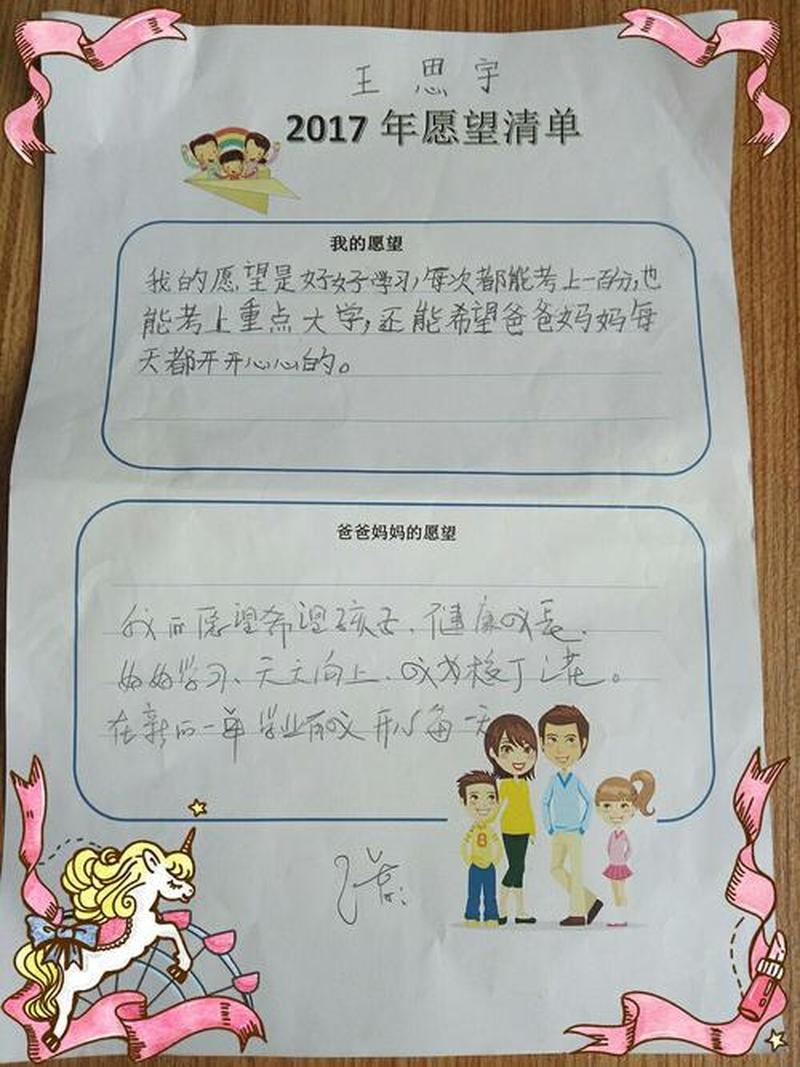 王思宇
2017 年愿望清单
我的愿望
我的愿望是好好学习,每次都能考上一百分,也
能考上重点大学,还能希望爸爸妈妈每
天都开开心心的。
爸爸妈妈的愿望
我的愿望希望孩子、健康成长、
好好学习、天天向上、成为校丁之花。
在新的一年学业有成 开心每一天
8